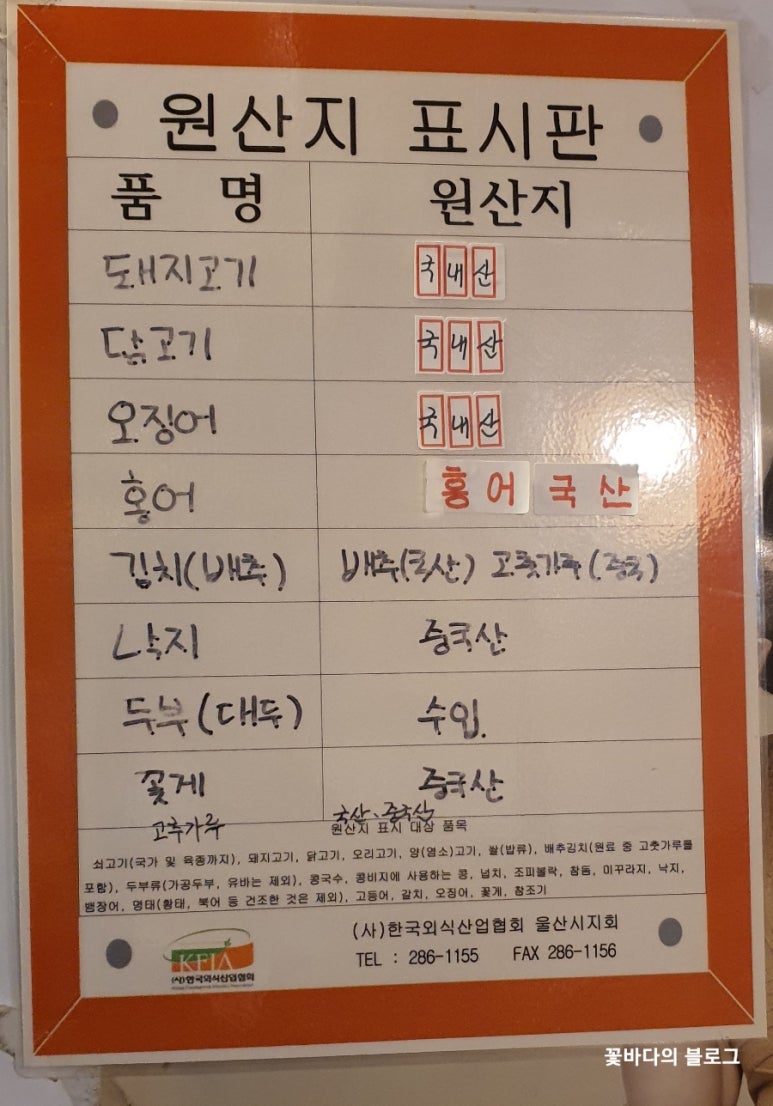 원산지 표시판
품 명 원산지
돼지고기 국내산
닭고기 국내산
오징어 국내산
홍어 홍어 국산
김치(배추) 배추(국산) 고춧가루(중국)
낙지 중국산
두부(대두) 수입.
꽃게 중국산
고추가루 국산、중국산
원산지 표시 대상 품목
쇠고기(국가 및 육종까지), 돼지고기, 닭고기, 오리고기, 양(염소)고기, 쌀(밥류), 배추김치(원료 중 고춧가루를
포함), 두부류(가공두부, 유바는 제외), 콩국수, 콩비지에 사용하는 콩, 넙치, 조피볼락, 참돔, 미꾸라지, 낙지,
뱀장어, 명태(황태, 북어 등 건조한 것은 제외), 고등어, 갈치, 오징어, 꽃게, 참조기
(사)한국외식산업협회 울산시지회
TEL : 286-1155 FAX 286-1156
KFIA
(사)한국외식산업협회
꽃바다의 블로그